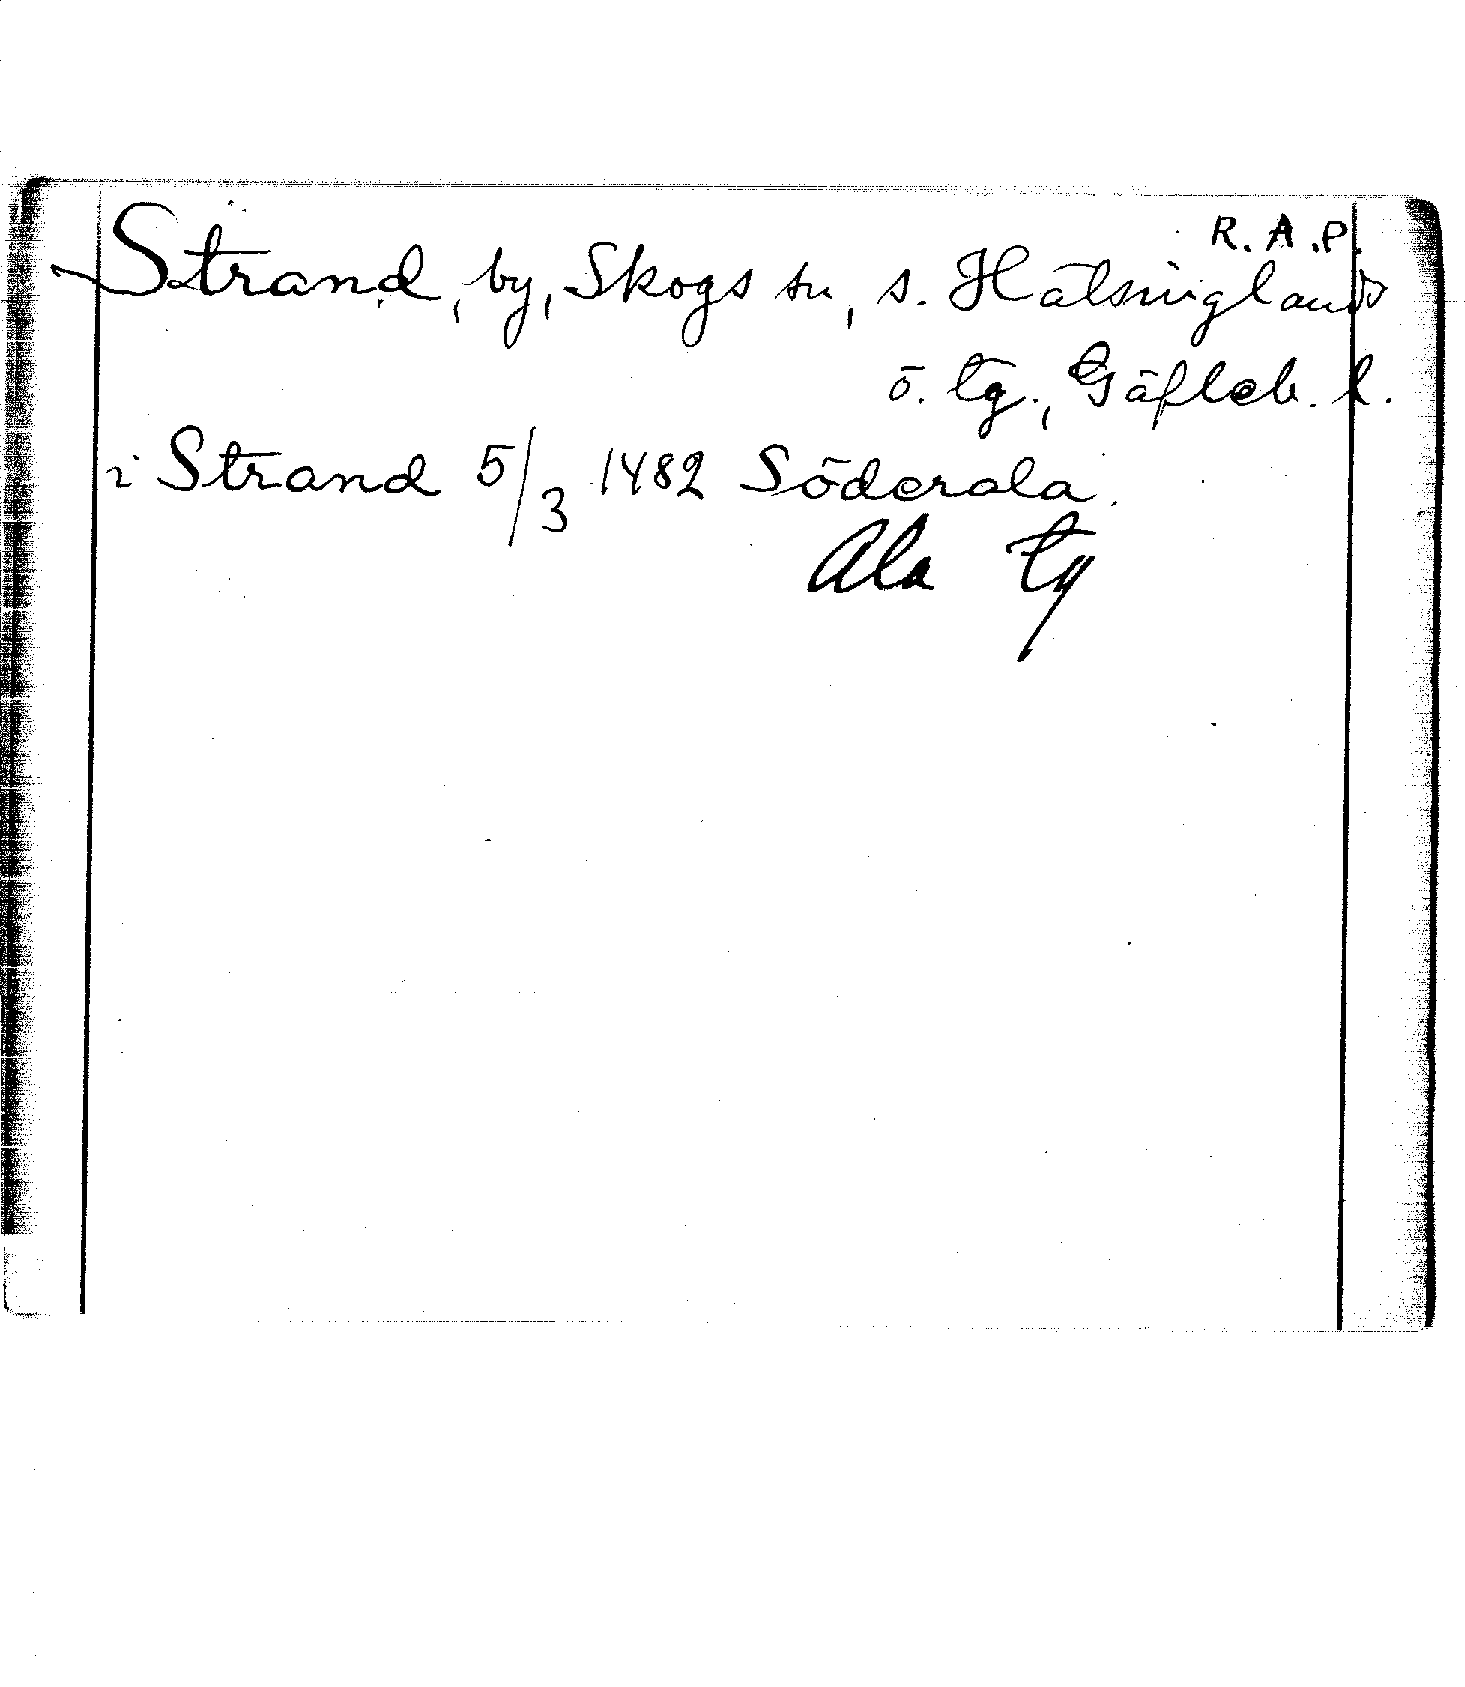 R.A.P.
Strand, by, Skogs sn, s. Hälsinglands
ö. tg., Gäfleb. l.
i Strand 5/3 1482 Söderala.
Ala tg